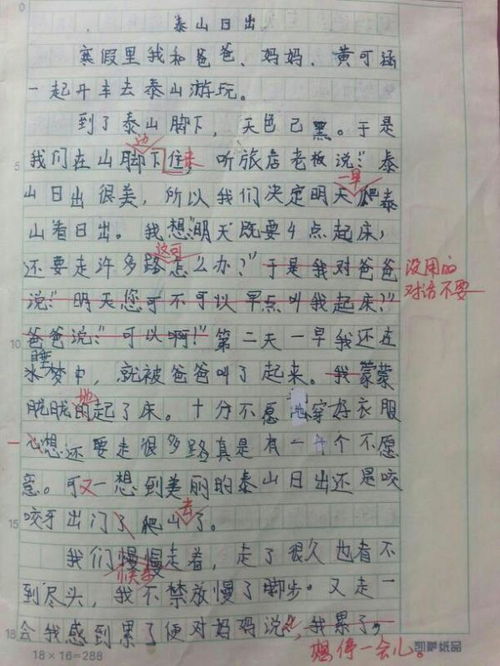 泰山日出
寒假里我和爸爸、妈妈、黄可涵
一起开车去泰山游玩。
到了泰山脚下，天色已黑。于是
边
我们在山脚下住来，听旅店老板说："泰
一早
山日出很美，所以我们决定明天爬泰
山看日出。我想"明天既要4点起床，
这可
还要走许多路怎么办？"于是我对爸爸
没用的
对话不要
说："明天您可不可以早点叫我起床？"
10
爸爸说："可以啊！"第二天一早我还在
睡梦中，就被爸爸叫了起来。我蒙蒙
地
胧胧的起了床。十分不愿 穿好衣服
心想还要走很多路真是有一千个不愿
意。可又一想到美丽的泰山日出还是咬
去
15
咬牙出门了爬山了。
我们慢慢走着，走了很久也看不
到尽头，我不禁放慢了脚步。又走一
18
会我感到累了便对妈妈说，我累了，
想停一会儿。
18×16=288
凯萨纸品